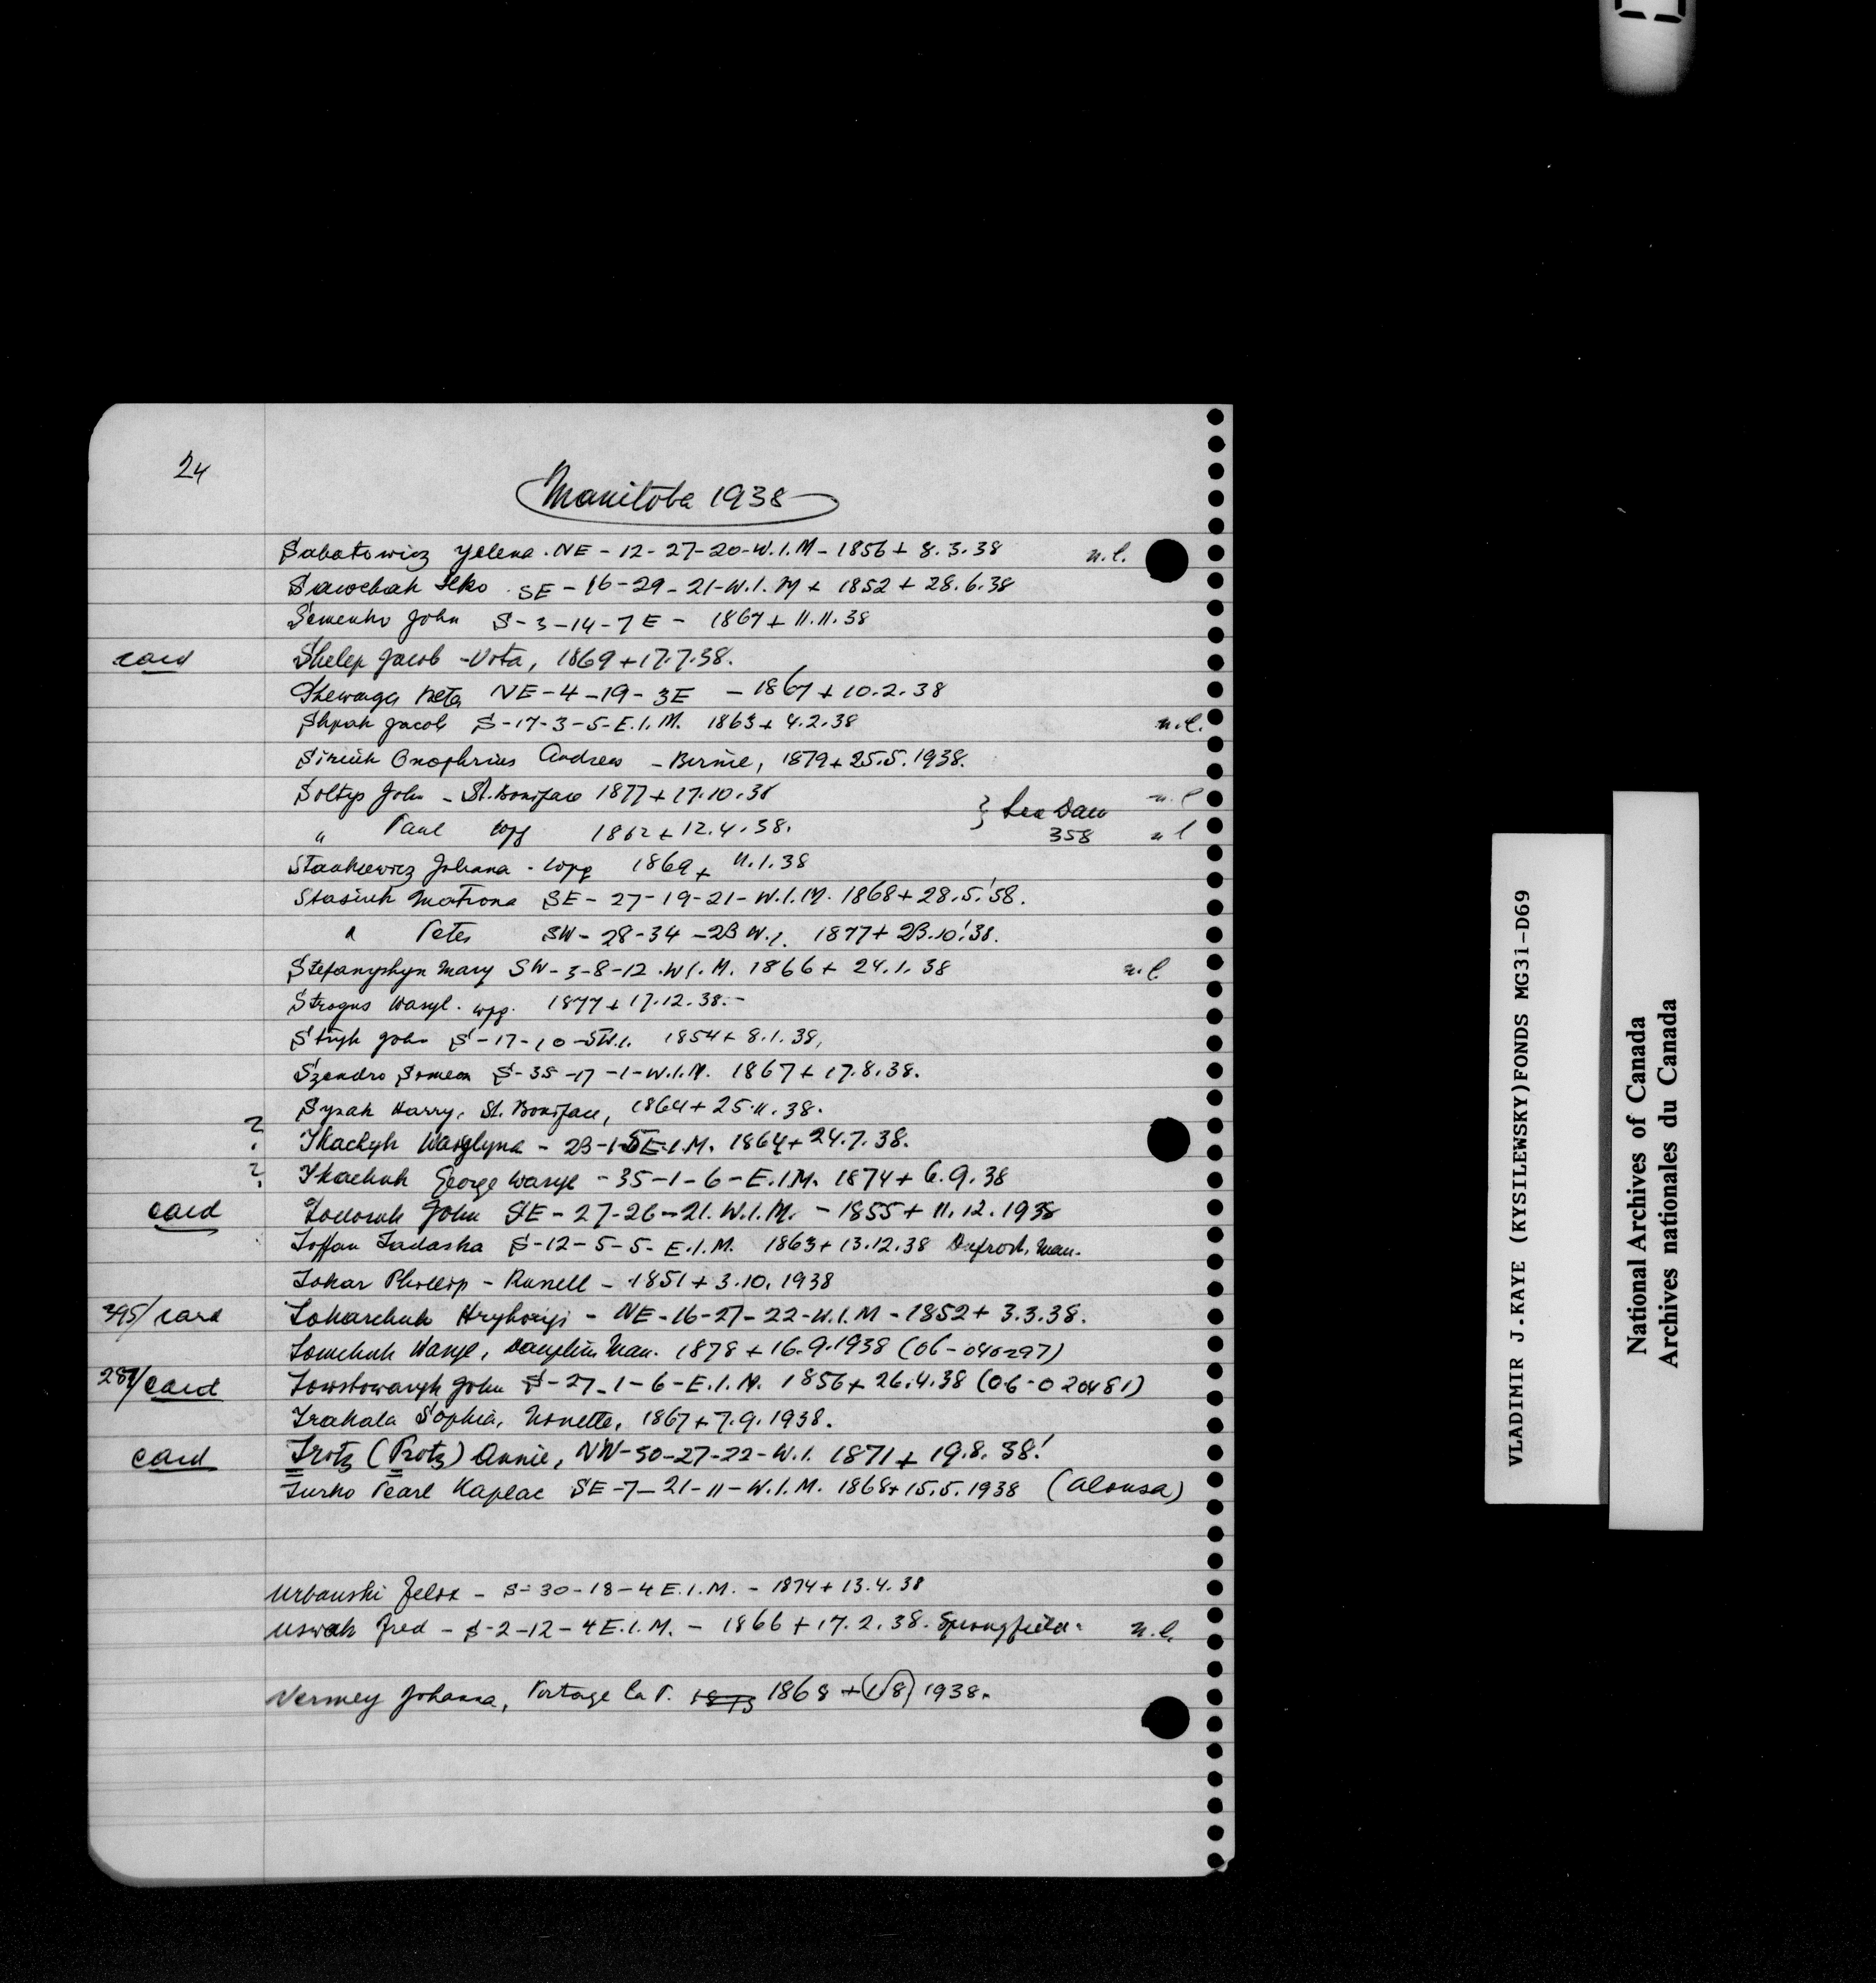 24
Manitoba 1938
Sabatowicz Yelena. NE - 12 - 27-20-W.1.M - 1856 + 8.3.38 n.l.
Sawchak Ilko SE - 16-29-21-W.1.M + 1852 + 28.6.38
Semenko John S-3-14-7E - 1867 + 11.11.38
card Shelep Jacob - Vita, 1869 + 17.7.38.
Shewaga Peter NE-4-19-3E - 1867 + 10.2.38
Shpak Jacob S-17-3-5-E.1.M. 1863 + 4.2.38 n.l.
Onophrius Andrew - Birnie, 1879 + 25.5.1938.
Soltys John - St. Boniface 1877 + 17.10.38 n.l
" Paul Wpg 1862 + 12.4.38. } 358 n l
Stankiewicz Johanna - Wpg 1869 + 11.1.38
Stasiuk Matrona SE - 27-19-21-W.1.M. 1868 + 28.5.'58.
" Peter SW - 28-34-23 W.1. 1877 + 23.10.'38.
Stefanyshyn Mary SW-3-8-12.W1.M. 1866 + 24.1.38 n.l.
Strogus Wasyl. Wpg. 1877 + 17.12.38.-
Stryk John S-17-10-5W.1. 1854 + 8.1.38,
Szandro Simeon S-35-17-1-W.1.M. 1867 + 17.8.38.
Sysak Harry, St. Boniface, 1864 + 25.11.38.
? Tkachyk Wasylyna - 23-1-5E.1.M. 1864 + 24.7.38.
? Tkachuk George Wasyl - 35-1-6-E.1.M. 1874 + 6.9.38
card Todoruk John SE - 27-26-21.W.1.M. - 1855 + 11.12.1938
Toffan Tadaska S-12-5-5-E.1.M. 1863 + 13.12.38 Man.
Tokar Phillip - Russell - 1851 + 3.10.1938
395/card Tokarchuk Hryhoriji - NE-16-27-22-W.1.M - 1852 + 3.3.38.
Tomchuk Wasyl, Dauphin Man. 1878 + 16.9.1938 (06-040297)
287/card Towstowaryk John S-27-1-6-E.1.M. 1856 + 26.4.38 (06-020481)
Trakala Sophia, 1867 + 7.9.1938.
card Trotz (Protz) Annie, NW-30-27-22-W.1. 1871 + 19.8.38!
Turko Pearl Kaplac SE-7-21-11-W.1.M. 1868 + 15.5.1938 (Alonsa)
Urbanski Felix - S-30-18-4E.1.M. - 1874 + 13.4.38
Uswak Fred - S-2-12-4E.1.M. - 1866 + 17.2.38. Springfield. n.l.
Vermey Johanna, Portage la P. 1873 1868 + (1/8) 1938.
VLADIMIR J.KAYE (KYSILEWSKY)FONDS MG31-D69
National Archives of Canada
Archives nationales du Canada